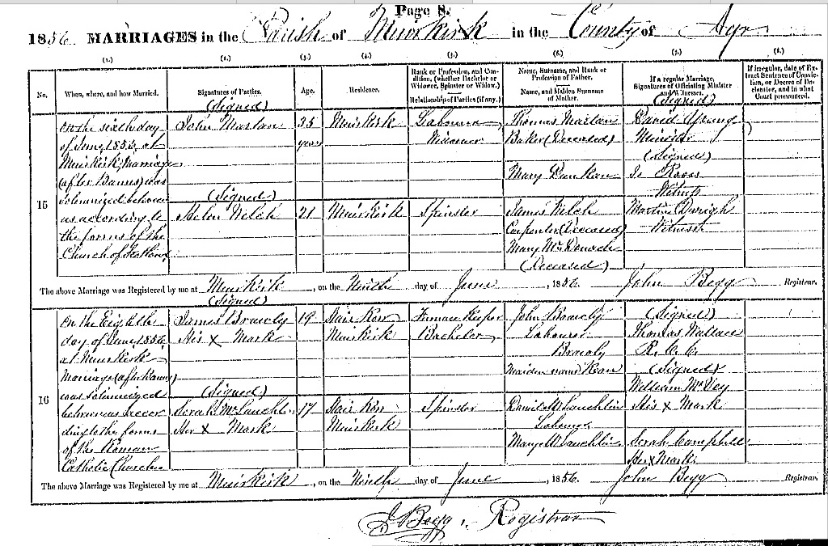 Page 8.
1856 MARRIAGES in the Parish of Muirkirk in the County of Ayr
(1.) (2.) (3.) (4.) (5.) (6.) (7.) (8.)
No.
When, where, and how Married.
Signatures of Parties.
(Signed)
Age.
Residence.
Rank or Profession, and Condition, (whether Bachelor or Widower, Spinster or Widow.)
Relationship of Parties (if any.)
Name, Surname, and Rank or Profession of Father.
Name, and Maiden Surname of Mother.
If a regular Marriage, Signatures of Officiating Minister and Witnesses.
(Signed)
If irregular, date of Extract Sentence of Conviction, or Decree of Declarator, and in what Court pronounced.
15
on the sixth day
of June 1856, at
Muirkirk, marriage
(after Banns) was
solemnized between
us according to
the forms of the
Church of Scotland
John
35
years
Muirkirk
Labourer
Widower
Thomas
Baker (Deceased)
Mary
David
Minister
(Signed)
Witness
(Signed)
Helen Welch
21
Muirkirk
Spinster
James Welch
Carpenter (Deceased)
Mary
(Deceased)
Witness
The above Marriage was Registered by me at Muirkirk, on the Ninth day of June, 1856. John Begg Registrar.
16
(Signed)
on the Eighth
day of June 1856,
at Muirkirk
Marriage (after Banns)
was solemnized
between us accor
ding to the forms
of the Roman
Catholic Church
James
His X Mark
19
Muirkirk
Furnace Keeper
Bachelor
John
Labourer
maiden name Kean
(Signed)
Thomas Wallace
R. C. C.
(Signed)
William McVey
His X Mark
(Signed)
Sarah McLauchlin
Her X Mark
17
Muirkirk
Spinster
Daniel McLauchlin
Labourer
Mary McLauchlin
Sarah Campbell
Her X Mark
The above Marriage was Registered by me at Muirkirk, on the Ninth day of June, 1856. John Begg Registrar.
J Begg, Registrar